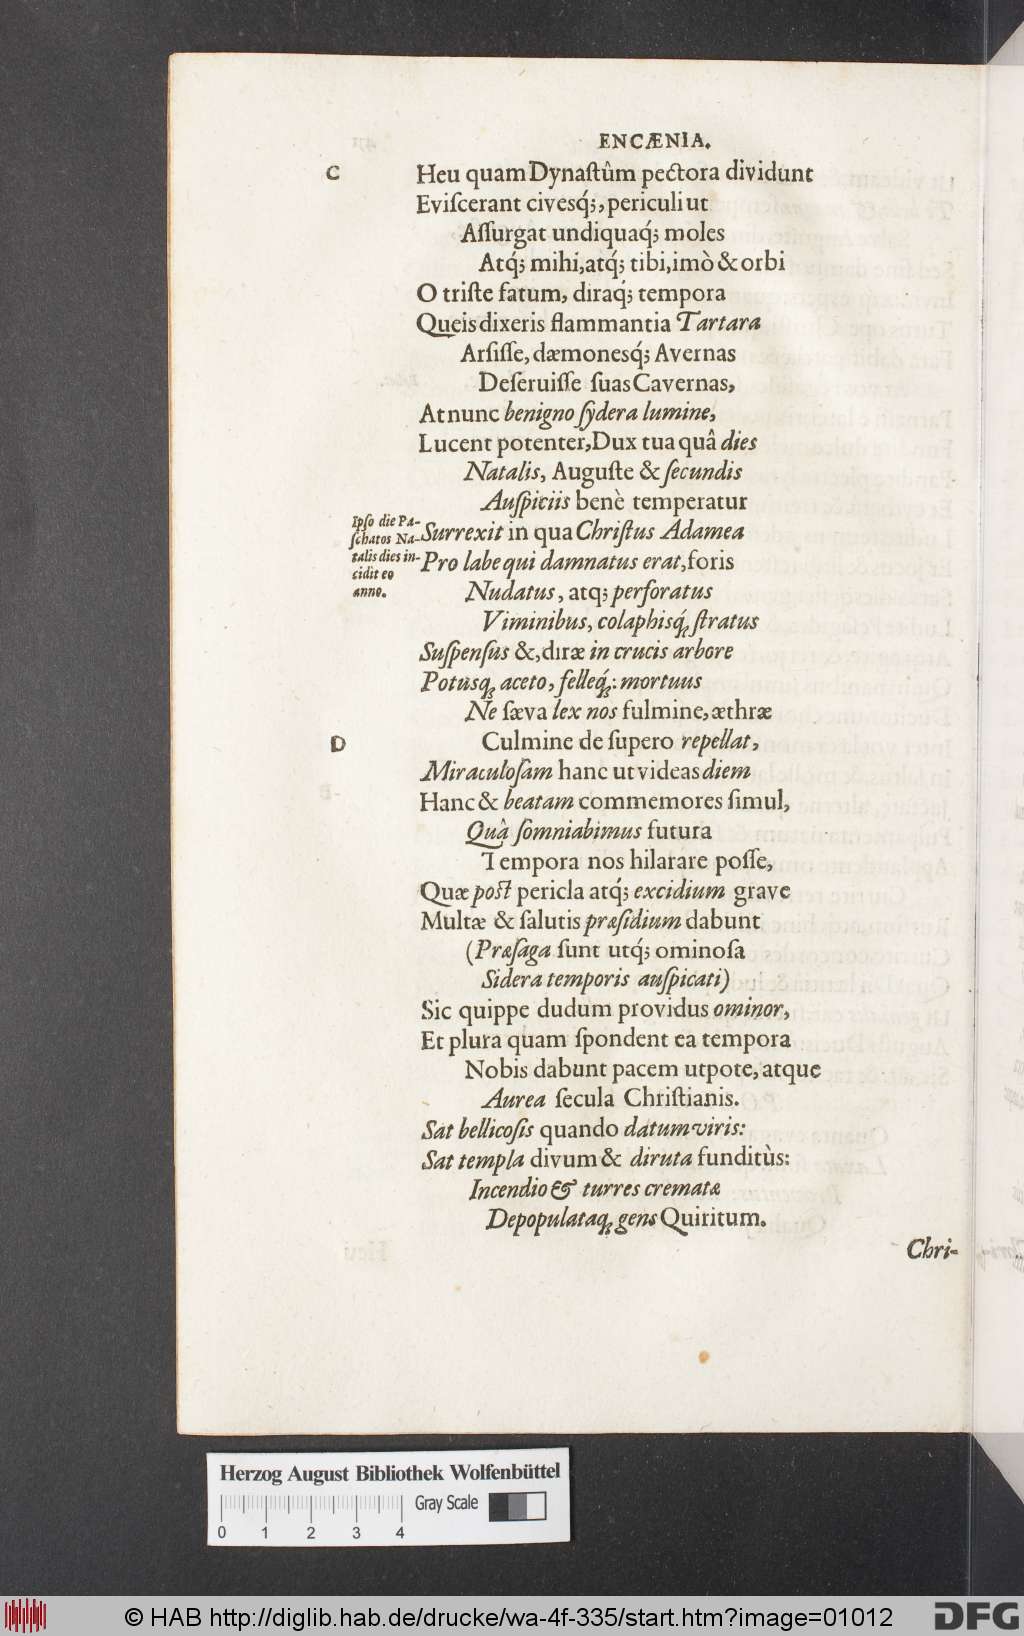 ENCÆNIA.
C
Heu quam Dynaſtûm pectora dividunt
Eviſcerant civesq́;, periculi ut
Aſſurgat undiquaq́; moles
Atq́; mihi, atq́; tibi, imò & orbi
O triſte fatum, diraq́; tempora
Queis dixeris flammantia Tartara
Arſiſſe, dæmonesq́; Avernas
Deſeruiſſe ſuas Cavernas,
At nunc benigno ſydera lumine,
Lucent potenter, Dux tua quâ dies
Natalis, Auguſte & ſecundis
Auſpiciis benè temperatur
Ipſo die Pa-
ſchatos Na-
talis dies in-
cidit eo
anno.
Surrexit in qua Chriſtus Adamea
Pro labe qui damnatus erat, foris
Nudatus, atq; perforatus
Viminibus, colaphisq́; ſtratus
Suſpenſus &, diræ in crucis arbore
Potusq; aceto, felleq́;: mortuus
Ne ſæva lex nos fulmine, æthræ
D
Culmine de ſupero repellat,
Miraculoſam hanc ut videas diem
Hanc & beatam commemores ſimul,
Quâ ſomniabimus futura
Tempora nos hilarare poſſe,
Quæ poſt pericla atq́; excidium grave
Multæ & ſalutis præſidium dabunt
(Præſaga ſunt utq́; ominoſa
Sidera temporis auſpicati)
Sic quippe dudum providus ominor,
Et plura quam ſpondent ea tempora
Nobis dabunt pacem utpote, atque
Aurea ſecula Chriſtianis.
Sat bellicoſis quando datum viris:
Sat templa divum & diruta funditùs:
Incendio & turres crematæ
Depopulataq; gens Quiritum.
Chri-
Herzog August Bibliothek Wolfenbüttel
Gray Scale
0 1 2 3 4
© HAB http://diglib.hab.de/drucke/wa-4f-335/start.htm?image=01012
DFG